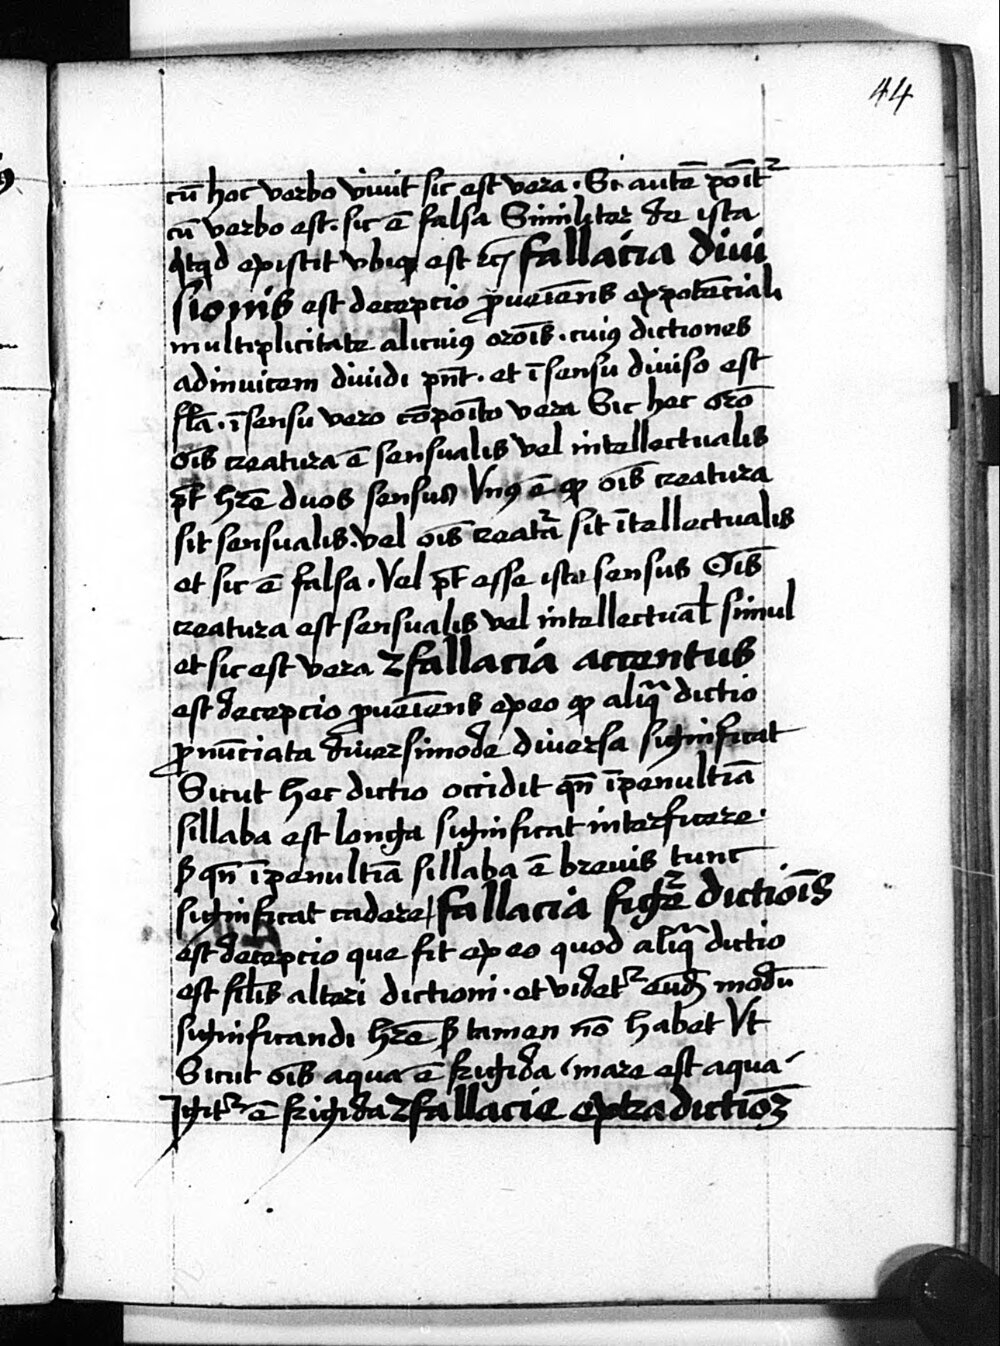 44
cū hoc verbo viuit sic est vera. Si autē poīt᷑
cū verbo est. sic ē falsa Similiter de ista
qͥtqͥd existit vbiqꝫ est ⁊cꝫ fallacia diui
sionis est decepcio ꝓueīens ex potēciali
multiplicitate alicuiꝰ orōis. cuiꝰ dictiones
adinuicem diuidi pn̄t. et ī sensu diuiso est
fl̄a. ī sensu vero cōpoīto vera Sic hec orō
oīs creatura ē sensualis vel intellectualis
pt̄ hr̄e duos sensus Vnꝰ ē ꝙ oīs creatura
sit sensualis. vel oīs creat᷑a sit ītellectualis
et sic ē falsa. Vel pt̄ esse iste sensus Oīs
creatura est sensualis vel intellectual̄ simul
et sic est vera ⁊ fallacia accentus
est decepcio ꝓueīens ex eo ꝙ aliqᷓ dictio
ꝓnūciata diuersimode diuersa significat
Sicut hec dictio occidit qn̄ ī penultīa
sillaba est longa significat interficere.
ꝭ qn̄ ī penultīa sillaba ē breuis tunc
significat cadere fallacia fig᷑e dictiōis
est decepcio que fit ex eo quod aliqᷓ dictio
est sil̄is alteri dictioni. et videt᷑ eūdꝫ modū
significandi hr̄e ꝭ tamen nō habet Vt
Sicut oīs aqua ē frigida mare est aqua
Igit᷑ ē frigida ⁊ fallacie extra dictiōꝫ